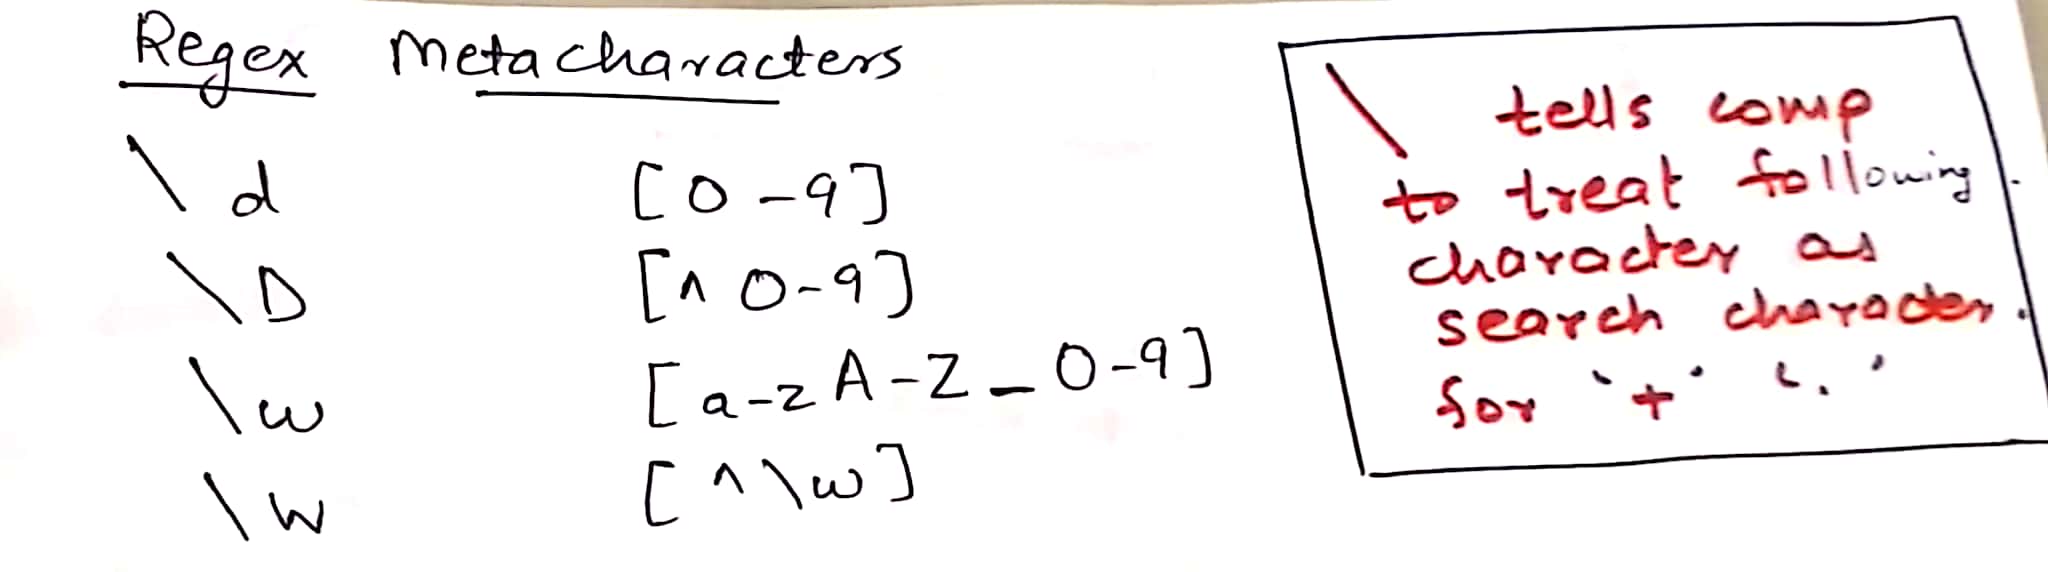 Regex Metacharacters
\d [0-9]
\D [^0-9]
\w [a-zA-Z_0-9]
\W [^\w]
\ tells comp
to treat following
character as
search character.
for '+' '.'